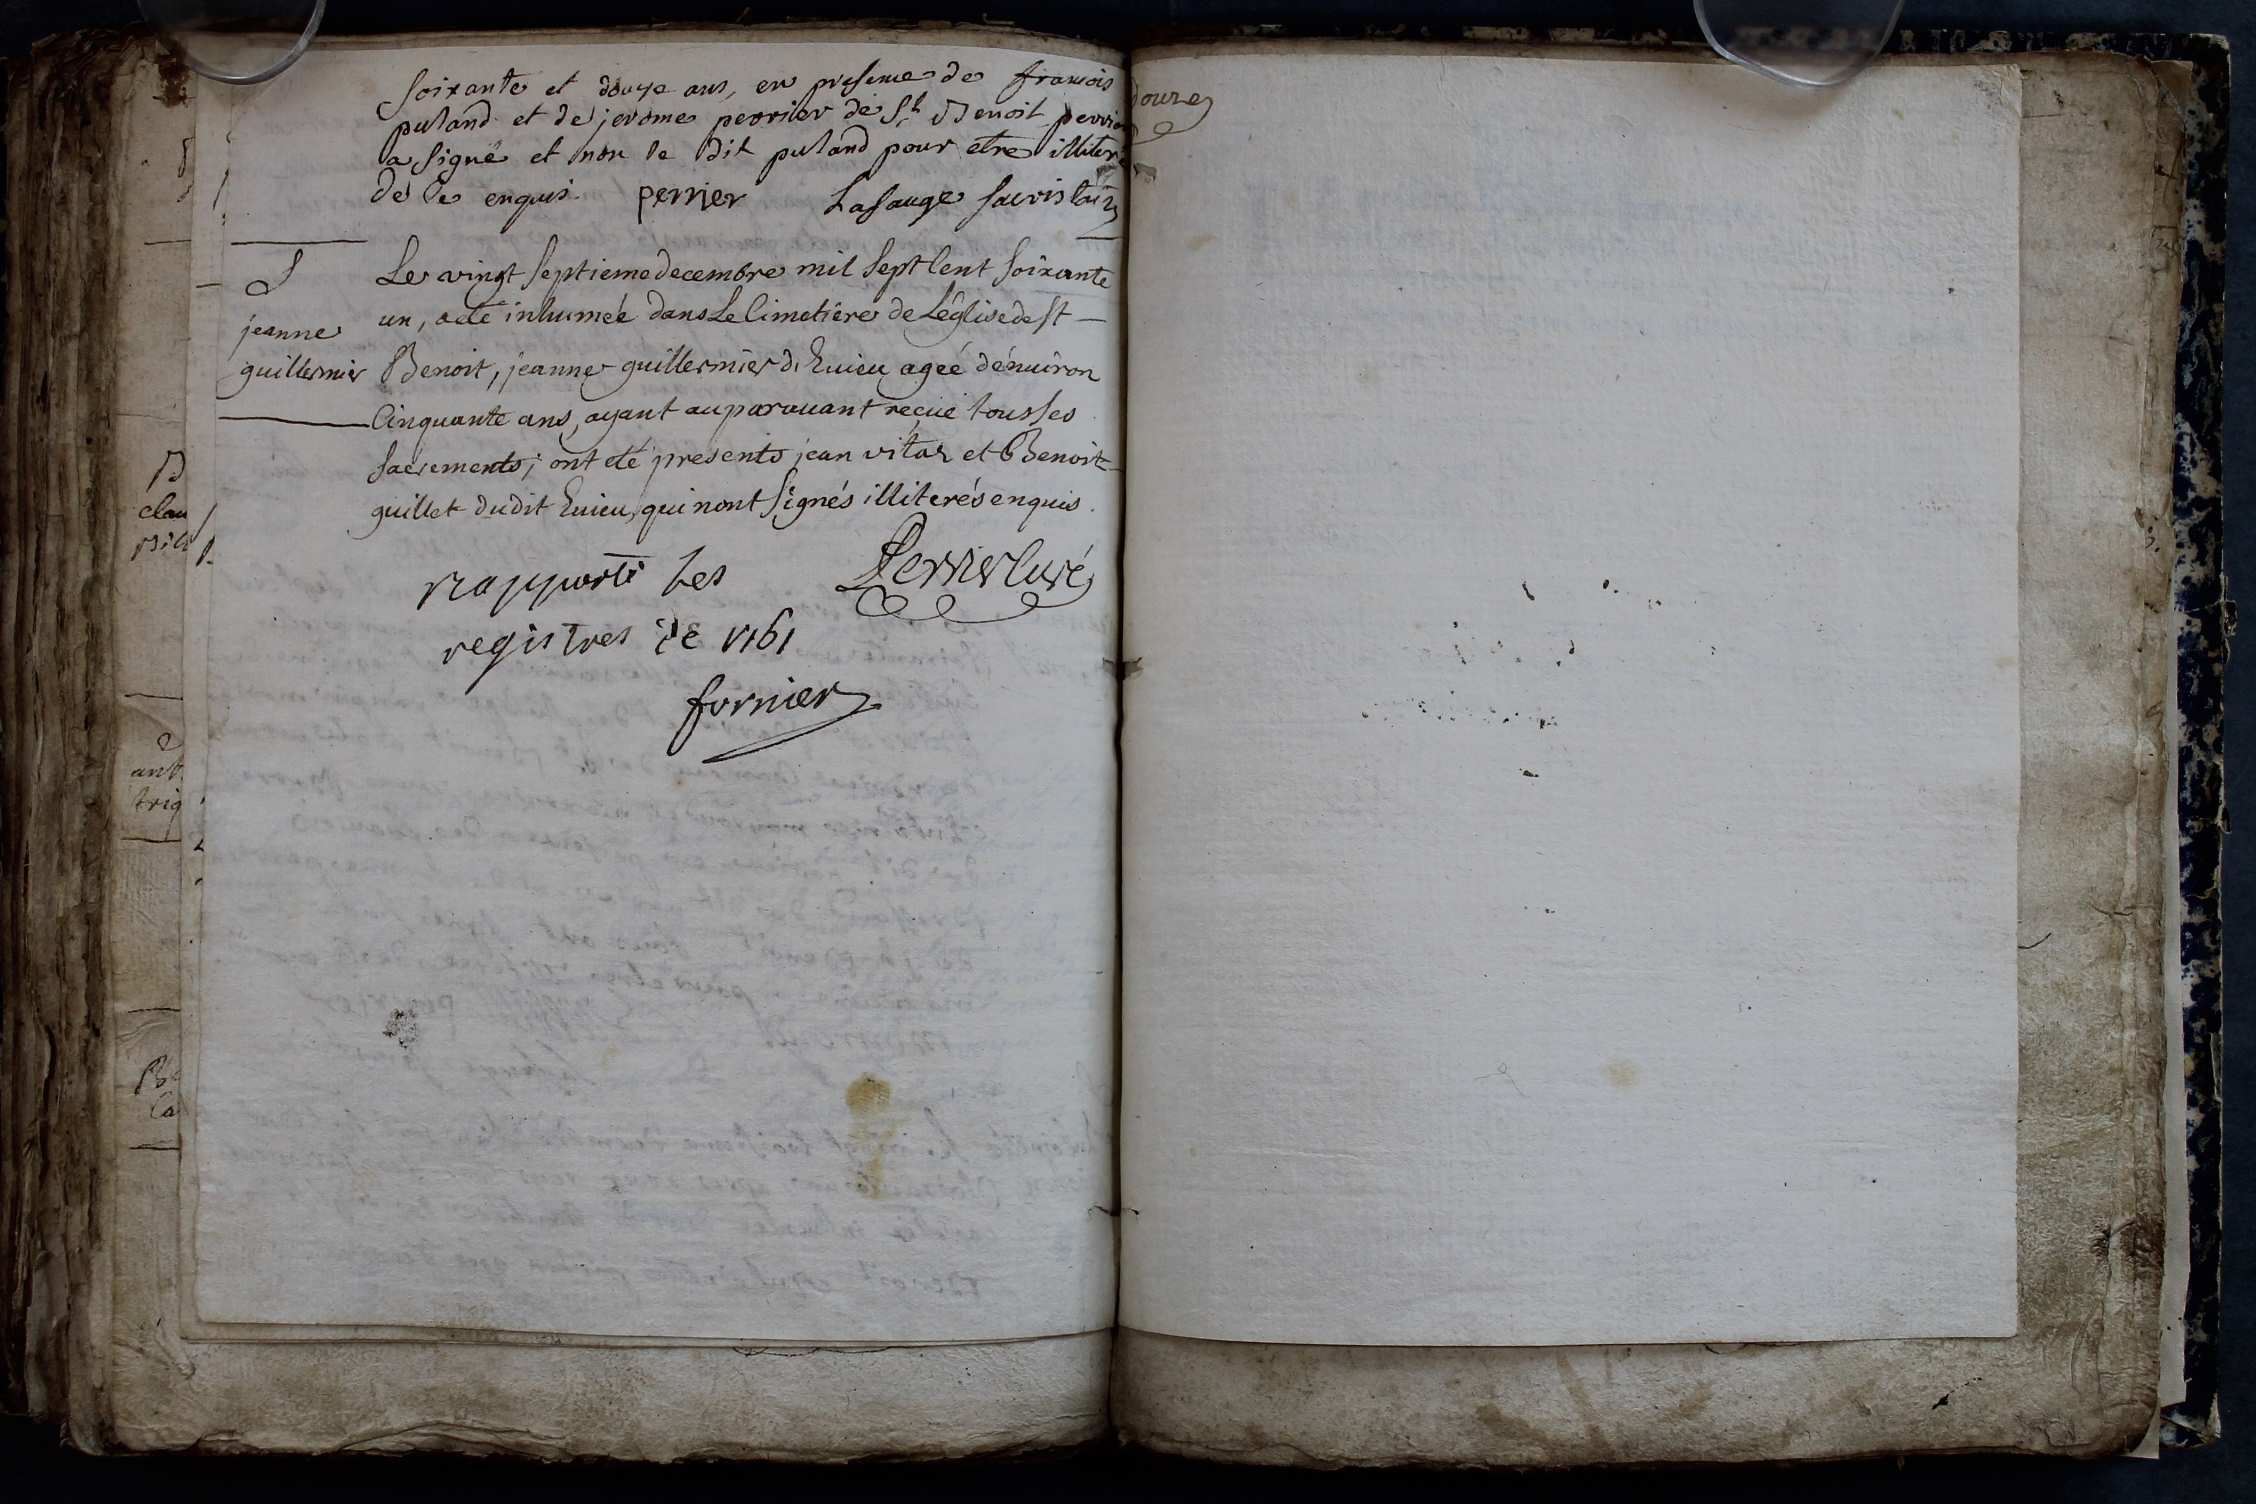 soixante et douze ans, en presence de francois
puland et de jerome perrier de St Benoit perrier
a signé et non le dit puland pour etre illiteré
de ce enquis. perrier Lasauge sacristain
S
jeanne
guillermier
Le vingt septieme decembre mil sept Cent soixante
un, a eté inhumée dans Le Cimetière de L'église de St
Benoit, jeanne guillermier d'Evieu ageé d'énuiron
Cinquante ans, ayant auparauant reçuë tous ses
sacrements; ont eté presents jean vitar et Benoit
guillet dudit Evieu, qui nont signés illiterés enquis.
Perrier Curé
rapporté les
registres de 1761
fornier
douze
B
clau
ant
trig